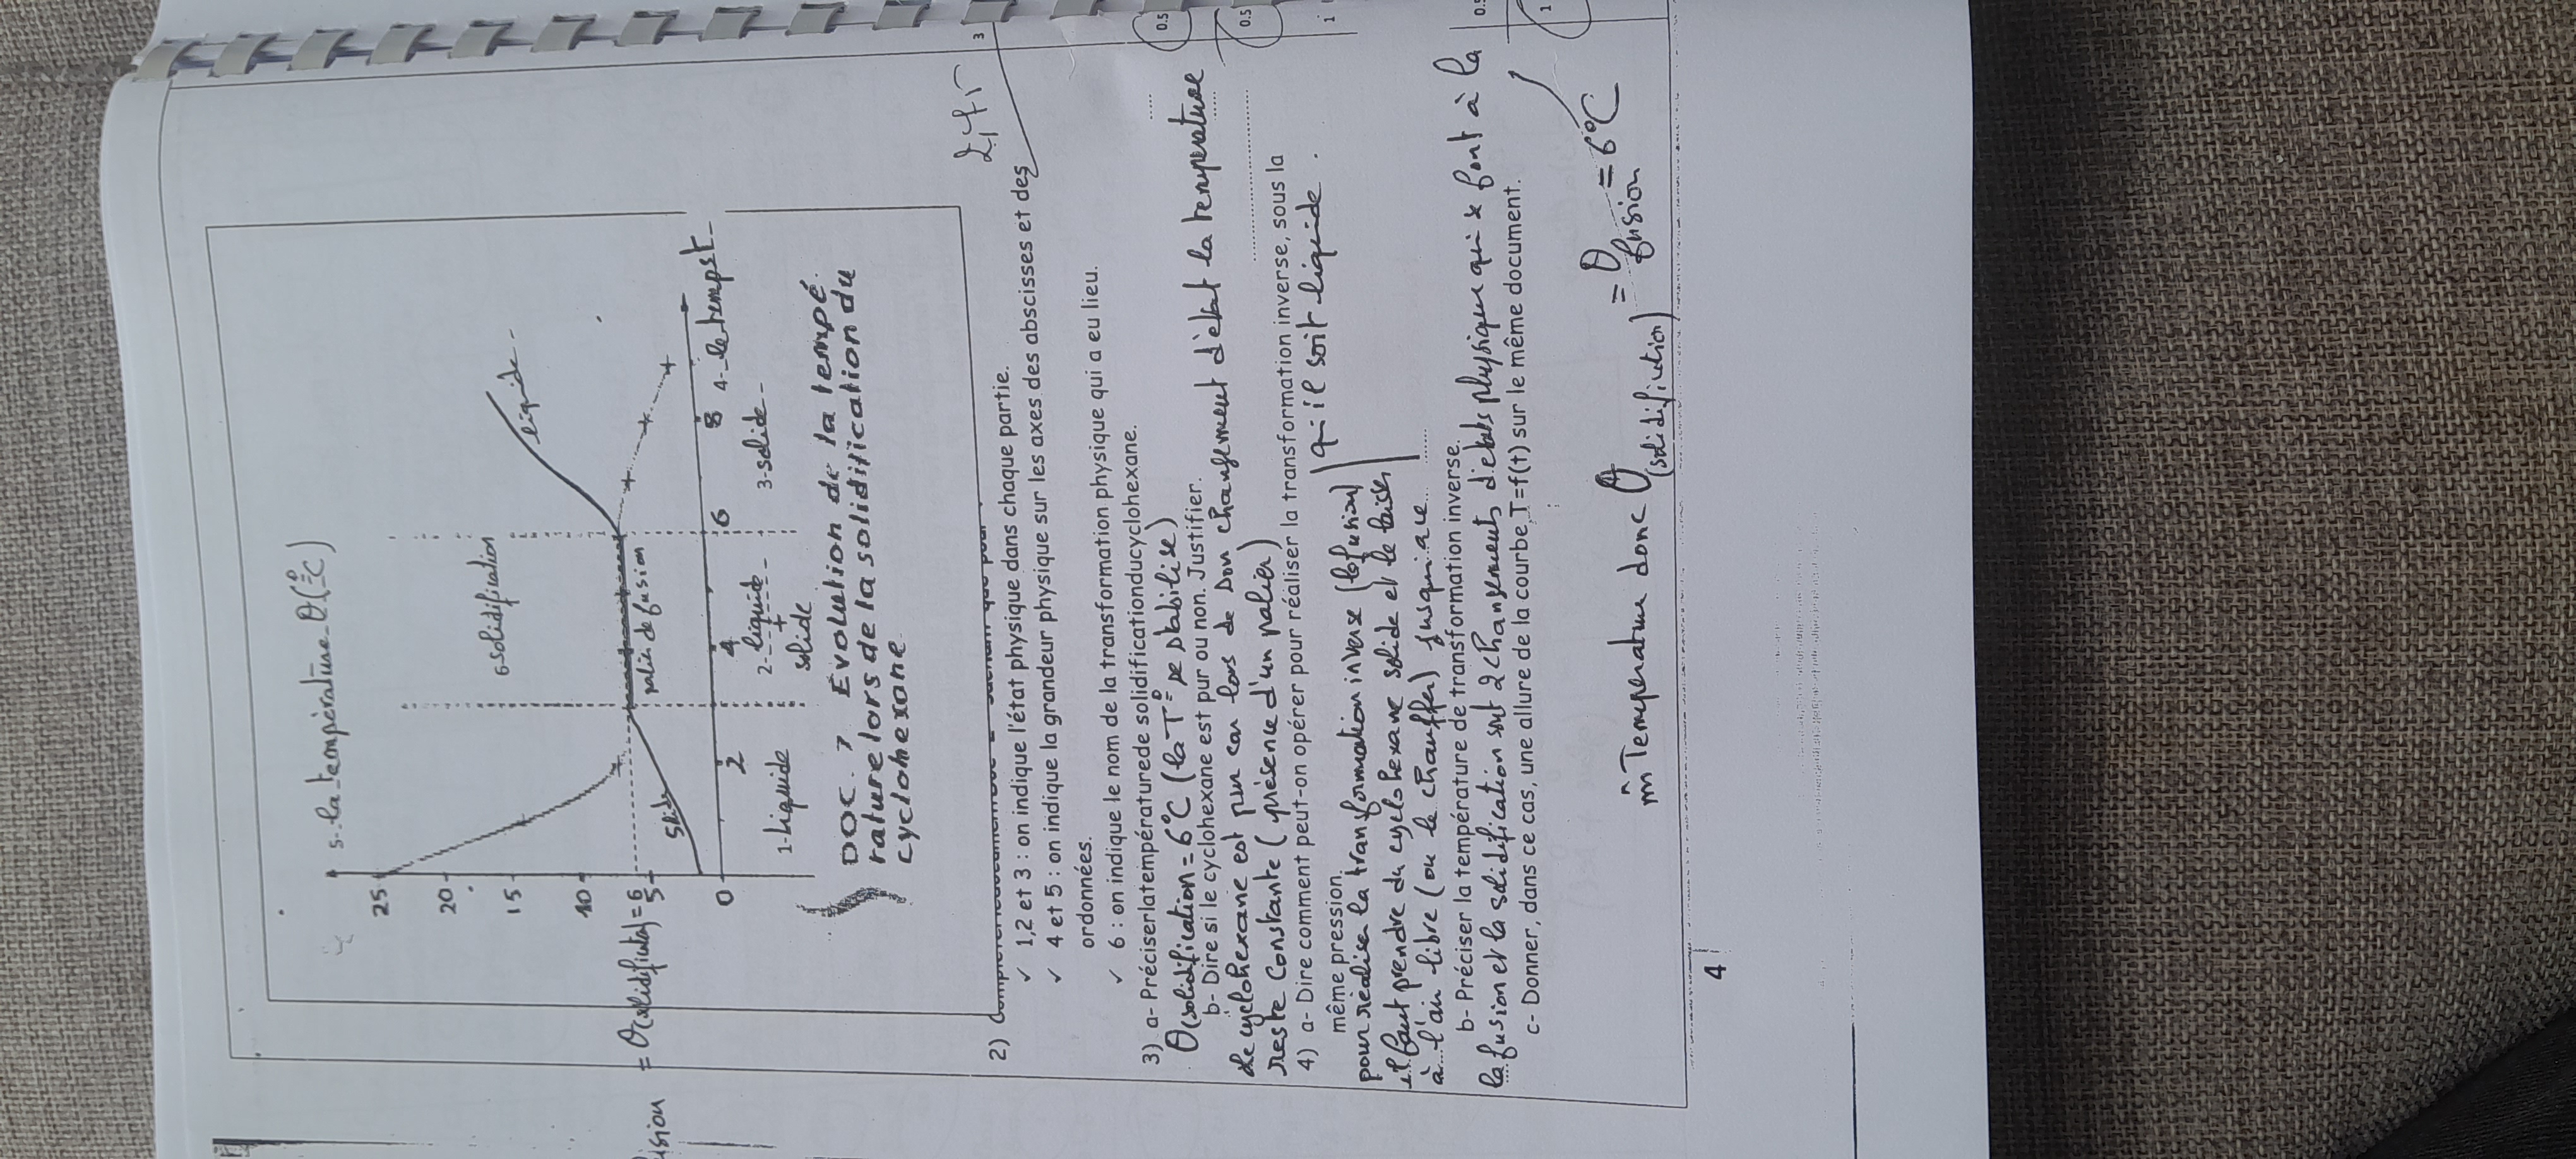 5-la température θ(°C)
25
20
15
10
5
0
= θ(solidificat°)=6
6-solidification
liquide
palier de fusion
Solide
2
4
6
8
4-le temps t
1-liquide
2-liquide
+
solide
3-solide
DOC. 7 Évolution de la tempé
rature lors de la solidification du
cyclohexane
3
2)
✓ 1,2 et 3 : on indique l'état physique dans chaque partie.
✓ 4 et 5 : on indique la grandeur physique sur les axes des abscisses et des
ordonnées.
✓ 6 : on indique le nom de la transformation physique qui a eu lieu.
3) a- Préciserlatempératurede solidificationducyclohexane.
0.5
θ(solidification = 6°C (la T° se stabilise)
b- Dire si le cyclohexane est pur ou non. Justifier.
0.5
le cyclohexane est pur car lors de son changement d'état la température
reste constante (présence d'un palier)
4) a- Dire comment peut-on opérer pour réaliser la transformation inverse, sous la
même pression.
1
pour réaliser la transformation inverse (la fusion)
il faut prendre du cyclohexane solide et le laisser
à l'air libre (ou le chauffer) jusqu'à ce
qu'il soit liquide.
b- Préciser la température de transformation inverse.
0.5
la fusion et la solidification sont 2 changements d'états physique qui se font à la
c- Donner, dans ce cas, une allure de la courbe T=f(t) sur le même document.
1
m̂ Température donc θ(solidification) = θ fusion = 6°C
4